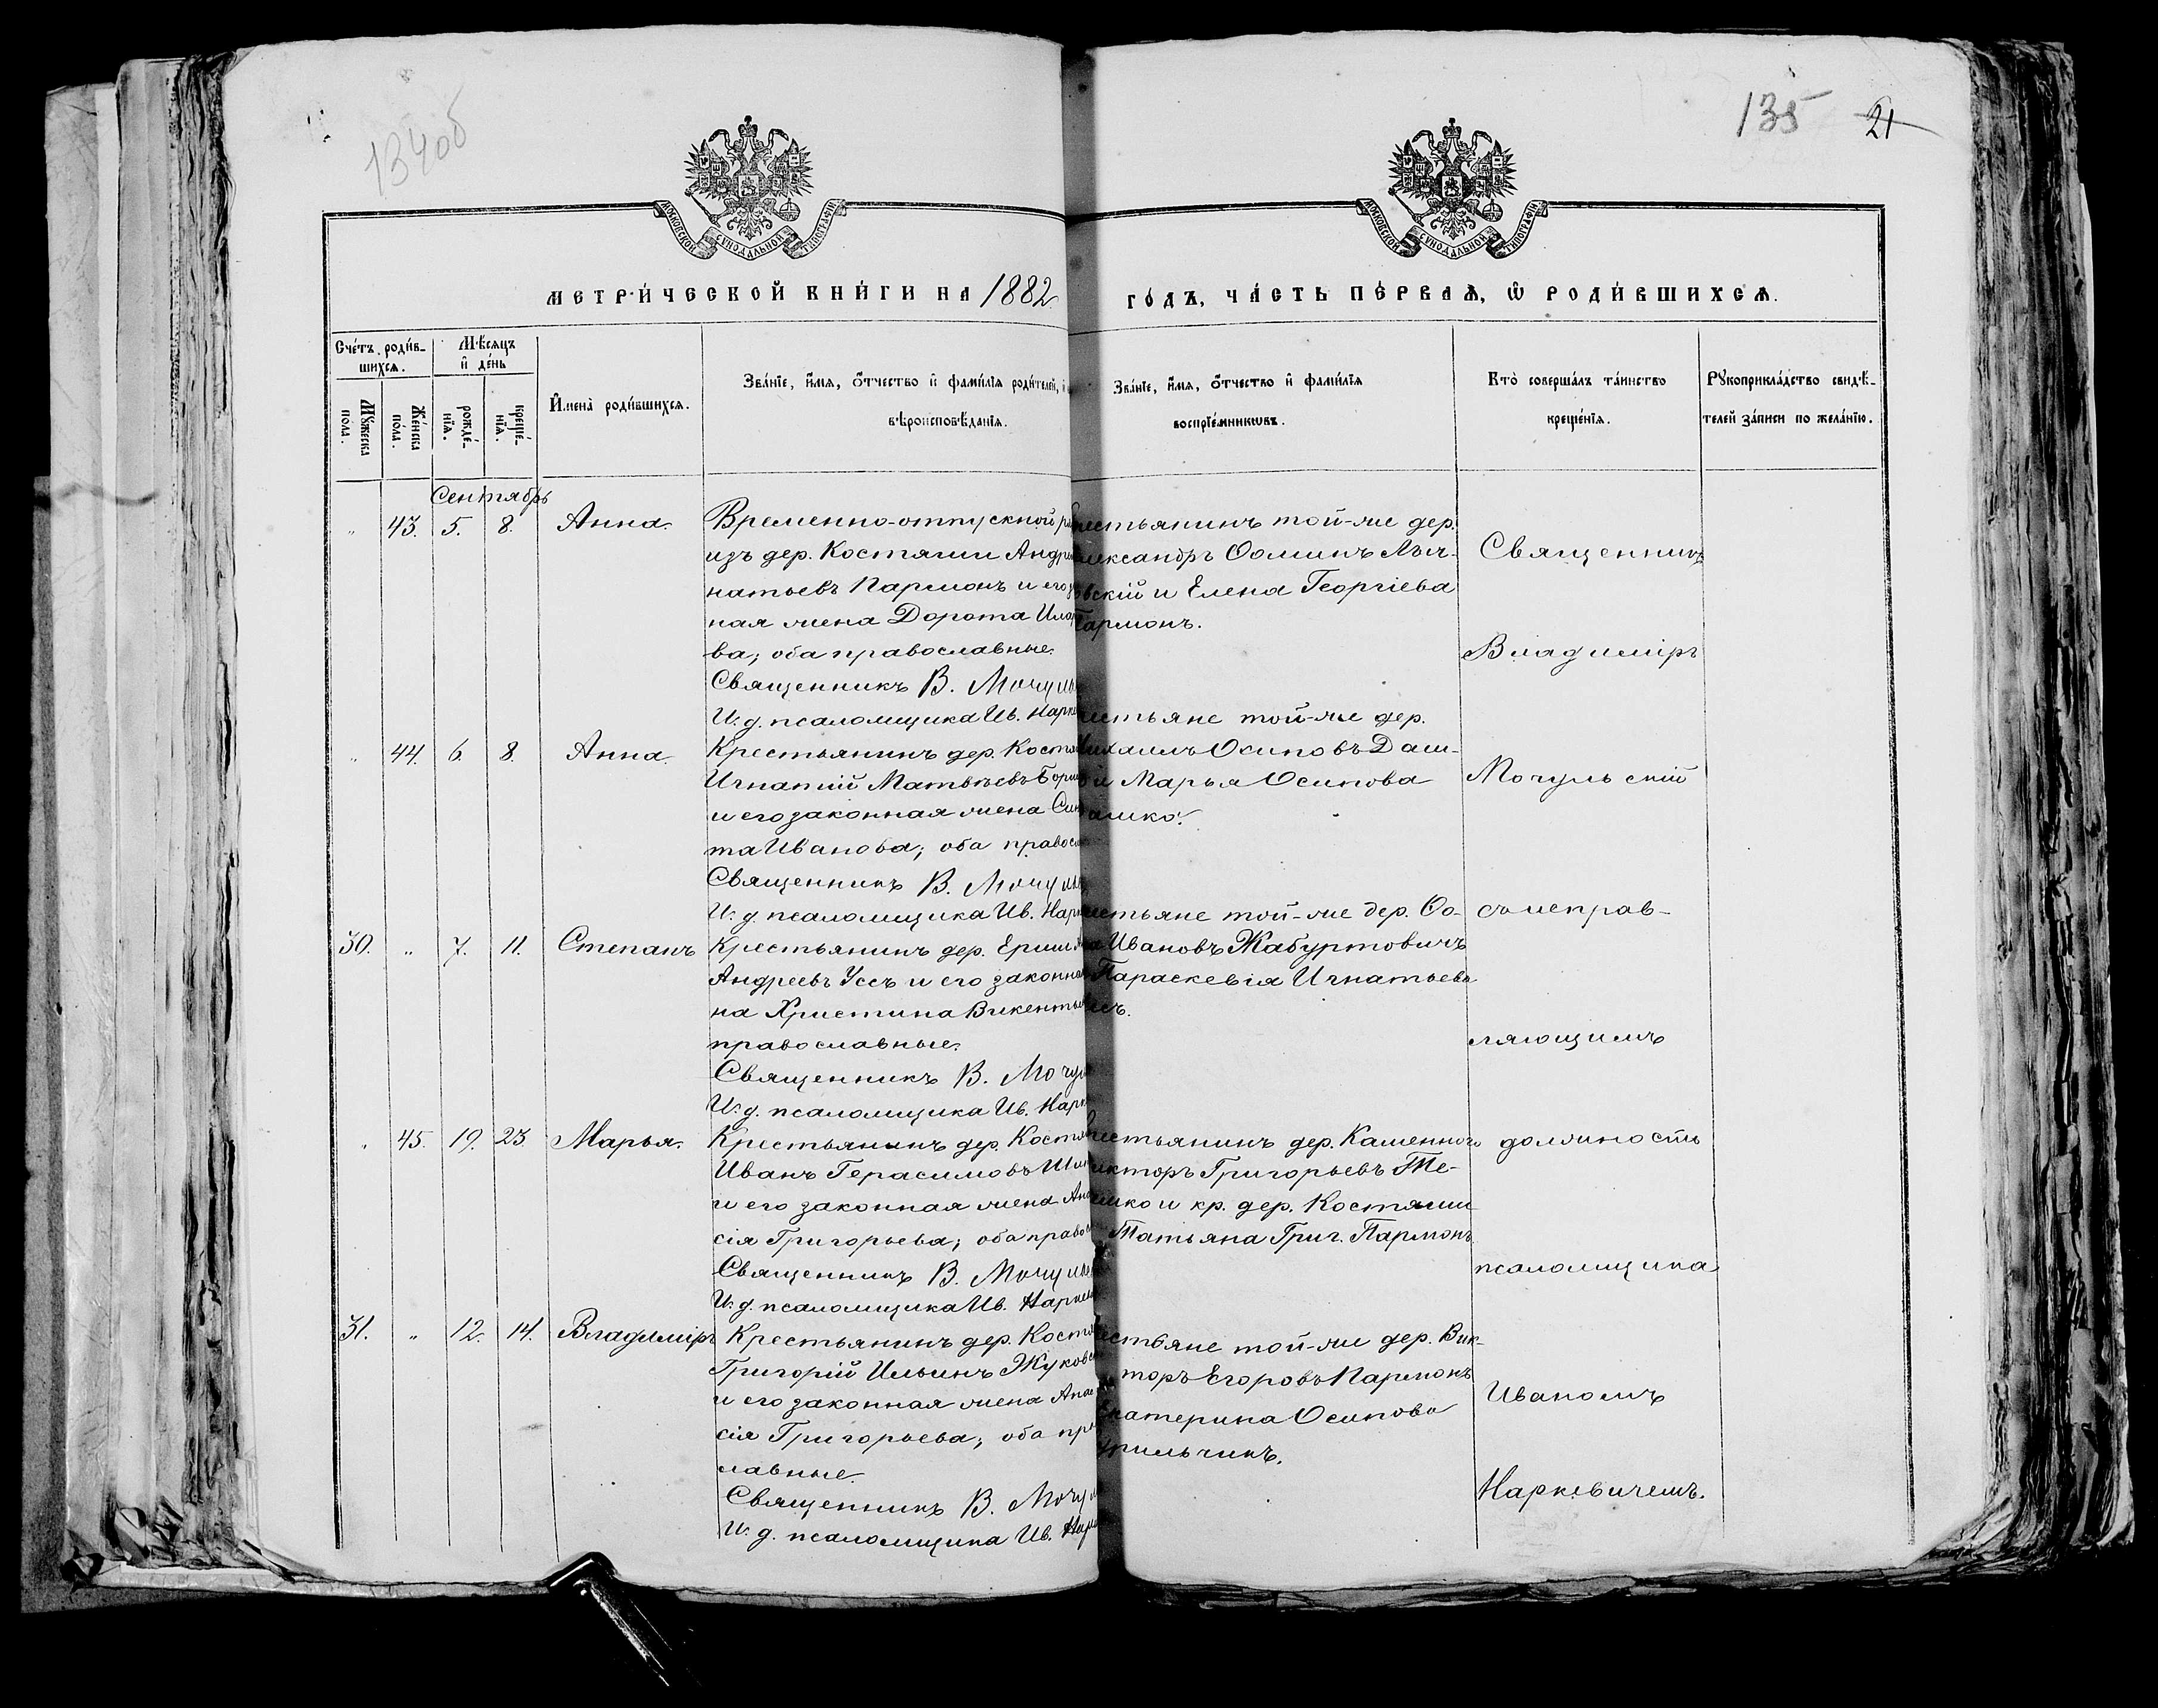 134об
135
21
МОСКОВСКОЙ СѴНОДАЛЬНОЙ ТИПОГРАФІИ
МОСКОВСКОЙ СѴНОДАЛЬНОЙ ТИПОГРАФІИ
МЕТРИ́ЧЕСКОЙ КНИ́ГИ НА 1882
ГО́ДЪ, ЧА́СТЬ ПЕ́РВАѦ, Ѡ РОДИ́ВШИХСѦ.
Сче́тъ роди́в-
шихсѧ.
Мѣ́сѧцъ
и де́нь
Мꙋ́жеска
пола.
Же́нска
по́ла.
рожде́-
нїѧ.
креще́-
нїѧ.
Имена̀ роди́вшихсѧ.
Зва́нїе, и́мѧ, ѻ҆́тчество и фами́лїѧ роди́телей, и
вѣроисповѣ́данїѧ.
Зва́нїе, и́мѧ, ѻ҆́тчество и фами́лїѧ
воспрїе́мникѡвъ.
Кто̀ соверша́лъ та́инство
креще́нїѧ.
Рꙋкоприкла́дство свидѣ́-
телей за́писи по жела́нїю.
Сентябрь
" 43. 5. 8. Анна.
Временно-отпускной ря
изъ дер. Костяши Андре
натьевъ Пармонъ и его з
ная жена Дорота Игна
ва; оба православные.
Священникъ В. Мочуль
И. д. псаломщика Ив. Нарке
рестьянинъ той-же дер.
лександръ Ѳоминъ Лыч-
вскій и Елена Георгіева
Пармонъ.
" 44. 6. 8. Анна.
Крестьянинъ дер. Костя
Игнатій Матвѣевъ
и его законная жена
та Иванова; оба правосл
Священникъ В. Мочуль
И. д. псаломщика Ив. Нарк
естьяне той-же дер.
ихаилъ Осиповъ Даш-
и Марья Осипова
ашко.
30. " 7. 11. Степанъ
Крестьянинъ дер. Ериш
Андреевъ Уссъ и его законная
на Христина Викентье
православные.
Священникъ В. Мочул
И. д. псаломщика Ив. Нарк
естьяне той-же дер. Ѳо-
ма Ивановъ Жабуртовичъ
Параскевія Игнатьева
ссъ.
" 45. 19. 23. Марья.
Крестьянинъ дер. Костя
Иванъ Герасимовъ
и его законная жена Ана
сія Григорьева; оба правос
Священникъ В. Мочуль
И. д. псаломщика Ив. Наркев
естьянинъ дер. Каменного
икторъ Григорьевъ Те-
ешко и кр. дер. Костяши
Татьяна Григ. Пармонъ.
31. " 12. 14. Владиміръ
Крестьянинъ дер. Костя
Григорій Ильинъ Жуковс
и его законная жена Анас
сія Григорьева; оба пра
лавные.
Священникъ В. Мочул
И. д. псаломщика Ив. Нарк
естьяне той-же дер. Вик-
торъ Егоровъ Пармонъ
катерина Осипова
рильчикъ.
Священникъ
Владиміръ
Мочульскій
съ исправ-
ляющимъ
должность
псаломщика
Иваномъ
Наркевичемъ.